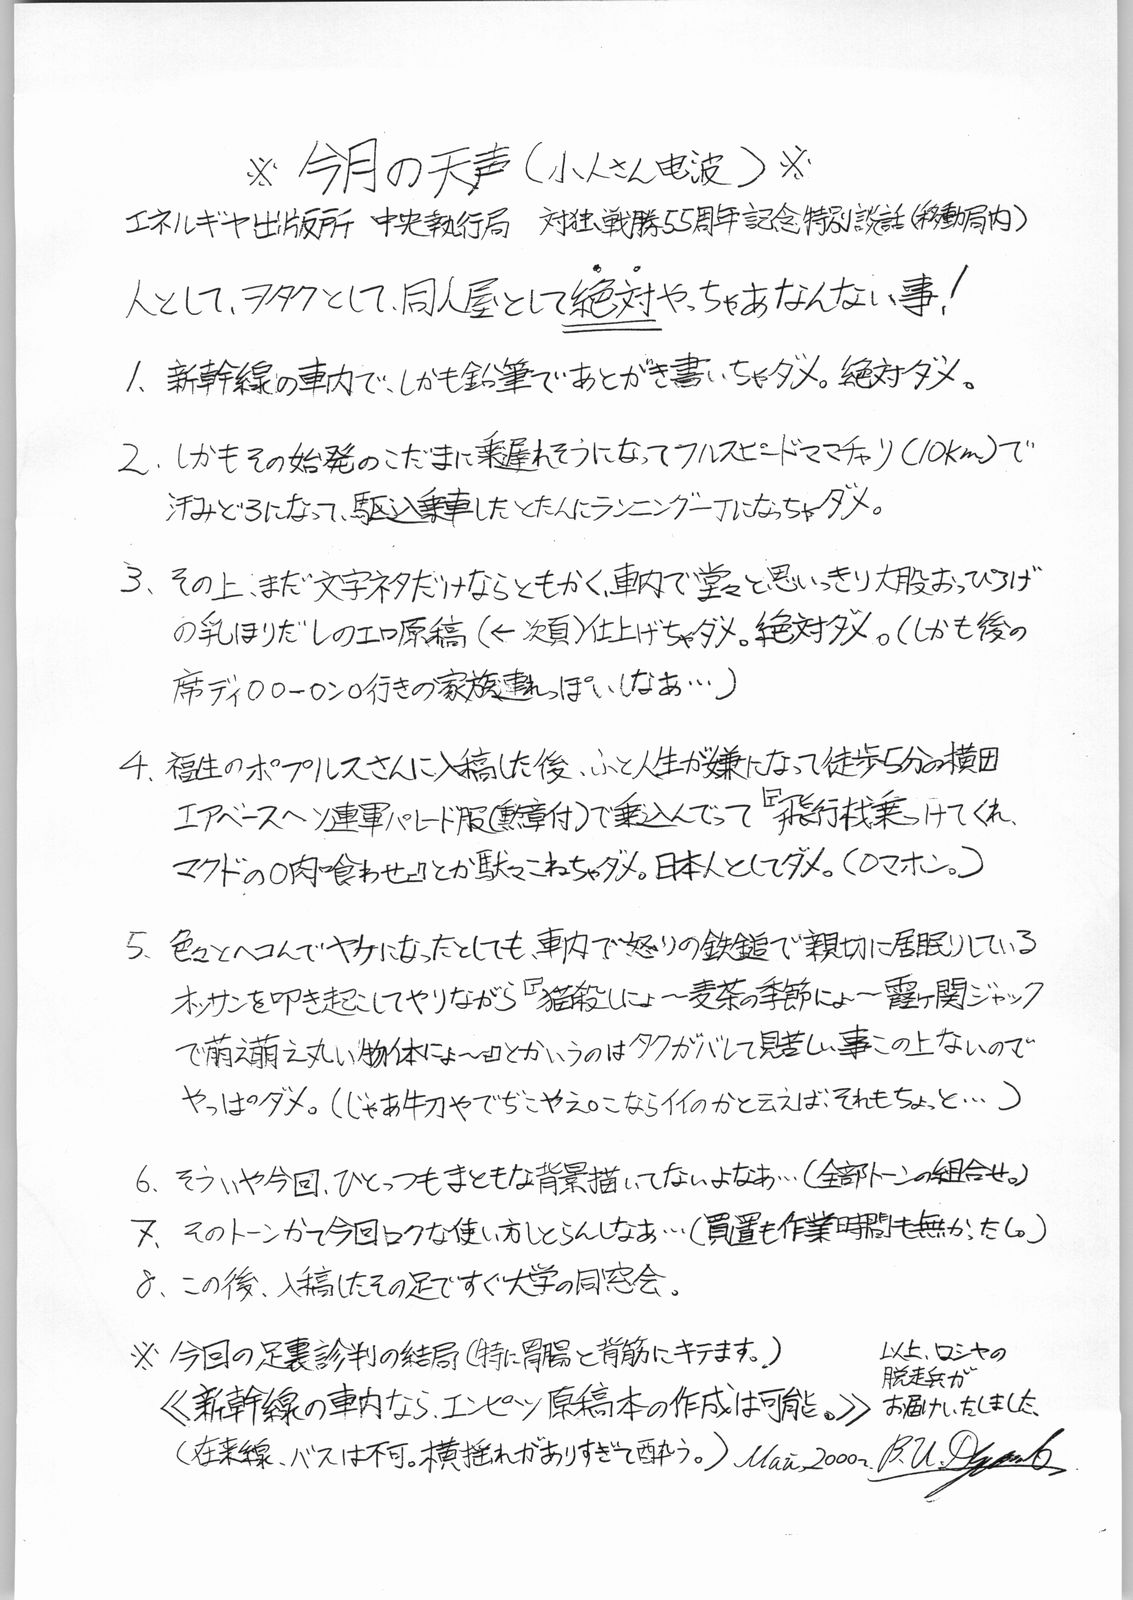 ※ 今月の天声(小人さん电波) ※
エネルギヤ出版所 中央執行局 対独戦勝55周年記念特別談話(移動局内)
人として、ヲタクとして、同人屋として絶対やっちゃあなんない事!
1、新幹線の車内で、しかも鉛筆であとがき書いちゃダメ。絶対ダメ。
2、しかもその始発のこだまに乗遅れそうになってフルスピードママチャリ(10km)で
汗みどろになって、駆込乗車したとたんにランニング一丁になっちゃダメ。
3、その上、まだ文字ネタだけならともかく、車内で堂々と思いっきり大股おっぴろげ
の乳ほりだしのエロ原稿(←次頁)仕上げちゃダメ。絶対ダメ。(しかも後の
席ディ〇〇ー〇ン〇行きの家族連れっぽいしなあ…)
4、福生のポプルスさんに入稿した後、ふと人生が嫌になって徒歩5分の横田
エアベースへソ連軍パレード服(勲章付)で乗込んでって『飛行机乗っけてくれ、
マクドの〇肉喰わせ』とか駄々こねちゃダメ。日本人としてダメ。(〇マホン。)
5、色々とヘコんでヤケになったとしても、車内で怒りの鉄鎚で親切に居眠りしている
オッサンを叩き起こしてやりながら『猫殺しにょ〜麦茶の季節にょ〜霞ヶ関ジャック
で萌え萌え丸い物体にょ〜』とかいうのはタクがバレして見苦しい事この上ないので
やっぱダメ。(じゃあ牛刀やでぢこやえ〇こならイイのかと云えば、それもちょっと…)
6、そういや今回、ひとつもまともな背景描いてないよなあ…(全部トーンの組合せ。)
7、そのトーンかて今回ロクな使い方しとらんしなあ…(買置も作業時間も無かったし。)
8、この後、入稿したその足ですぐ大学の同窓会。
※ 今回の足裏診判の結局(特に胃腸と背筋にキテます。)
≪新幹線の車内なら、エンピツ原稿本の作成は可能。≫
(在来線、バスは不可。横揺れがありすぎて酔う。)
以上、ロシヤの
脱走兵が
お届けいたしました、
Май, 2000г.